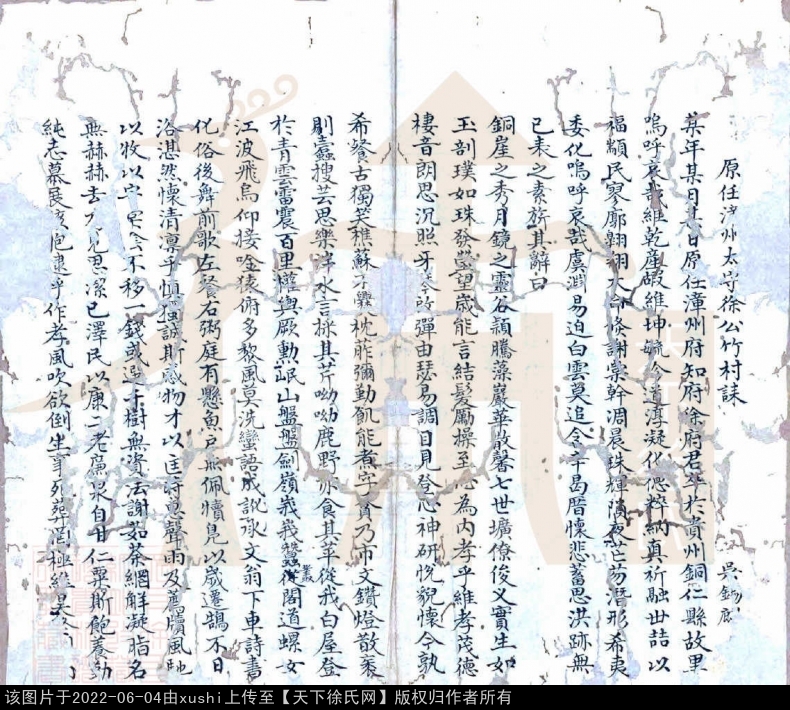 原任漳州太守徐公竹村誄
吳錫
某年某月某日原任漳州府知府徐府君卒於貴州銅仁縣故里
嗚呼哀哉維乾產嘏維坤毓令道淳凝化德粹納真祈融世喆以
福顓民寥廓翱翔大命倏謝棠幹凋晨珠輝隕夜亡芴潛形希夷
委化嗚呼哀哉虞淵易迫白雲莫追令辛曷厝懷悲蓄思洪跡無
已表之素旂其辭曰
銅崖之秀月鏡之靈谷頴騰藻巖華散馨七世壙僚俊乂實生如
玉剖璞如珠發瑩望歲能言結髮厲操至心為內孝乎維孝茂德
棲音朗思沉照牙彈由瑟易調目見登心神研悅窺懷今孰
希發古獨笑樵蘇不爨枕葄彌勤飢能煮字貧乃市文鑽燈散袠
剔蠹搜芸思樂泮水言採其芹呦呦鹿野亦食其苹從我白屋登
於青雲雷震百里懋輿厥勳岷山盤盤劍嶺峩峩蠶叢閣道螺女
江波飛烏仰接唫猿俯多黎風莫洗蠻語成訛承文翁下車詩書
化俗後舞前歌左餐右粥庭有懸魚戶無佩犢見以歲遷鵲不日
洛湛然懷清凛乎慎獨誠斯感物才以匡時莫聲雨及薦牘風馳
以牧以守冰不移一錢或選千樹無資法謝茹荼網解凝脂名
無赫赫去見思潔已澤民以康二老廉泉自甘仁粟斯飽養勤
純志慕乎作孝風吹欲倒生事死葬罔極維昊
該图片于2022-06-04由xushi上传至【天下徐氏网】版权归作者所有